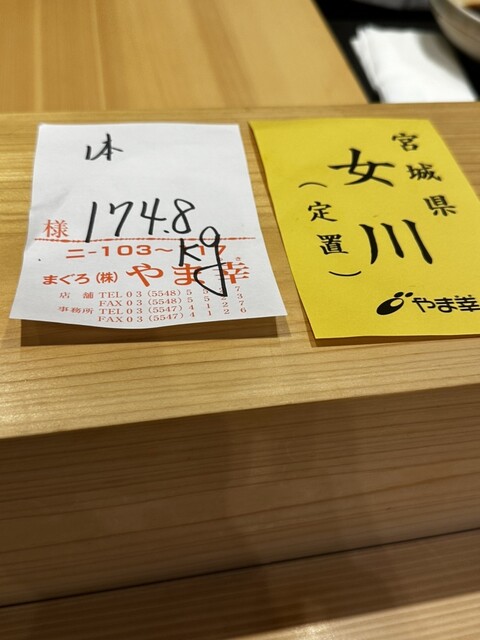 本
174.8
kg
様
ニ-103~17
まぐろ(株)やま幸
店舗 TEL 03(5548)5
FAX 03(5548)5527
事務所 TEL 03(5547)4412
FAX 03(5547)4126
宮城県
女川
(定置)
やま幸